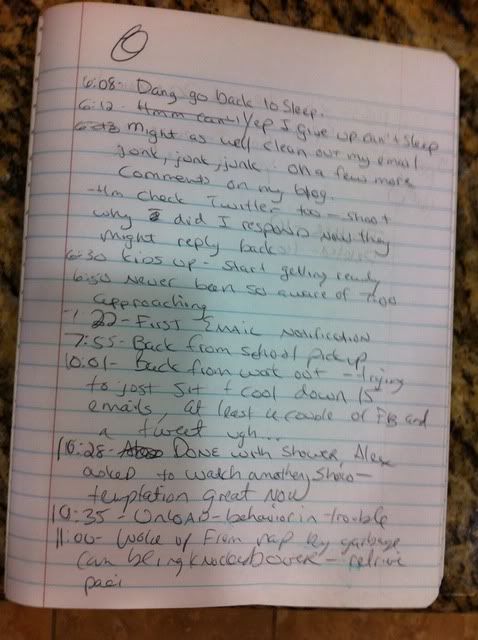 6:08- Dang go back to sleep.
6:12- Hmm can't Yep I give up can't sleep
might as well clean out my email
junk, junk, junk. oh a few more
comments on my blog.
-Hm check Twitter too - shoot
why did I respond now they
might reply back
6:30 kids up - start getting ready
6:50 Never been so aware of 7:00
approaching
7:22- First Email Notification
7:55- Back from school pickup
10:01- Back from work out - trying
to just sit + cool down 15
emails, at least a couple of FB and
a tweet ugh...
10:28- Done with shower, Alex
asked to watch another show-
temptation great now
10:35- Unload-behavior in trouble
11:00- Woke up from nap by garbage
can being knocked over - retrive
paci